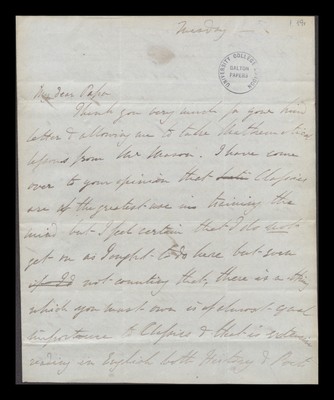 Tuesday
UNIVERSITY COLLEGE LONDON
GALTON PAPERS
My dear Papa
Thank you very much for your kind
letter & allowing me to take Mathematical
lessons from Mr Mason. I have come
over to your opinion that Classics
are of the greatest use in training the
mind but I feel certain that I do not
get on as I ought to do here but even
if I do not counting that, there is a thing
which you must own is of almost equal
importance to Classics & that is extensive
reading in English both History & Poet